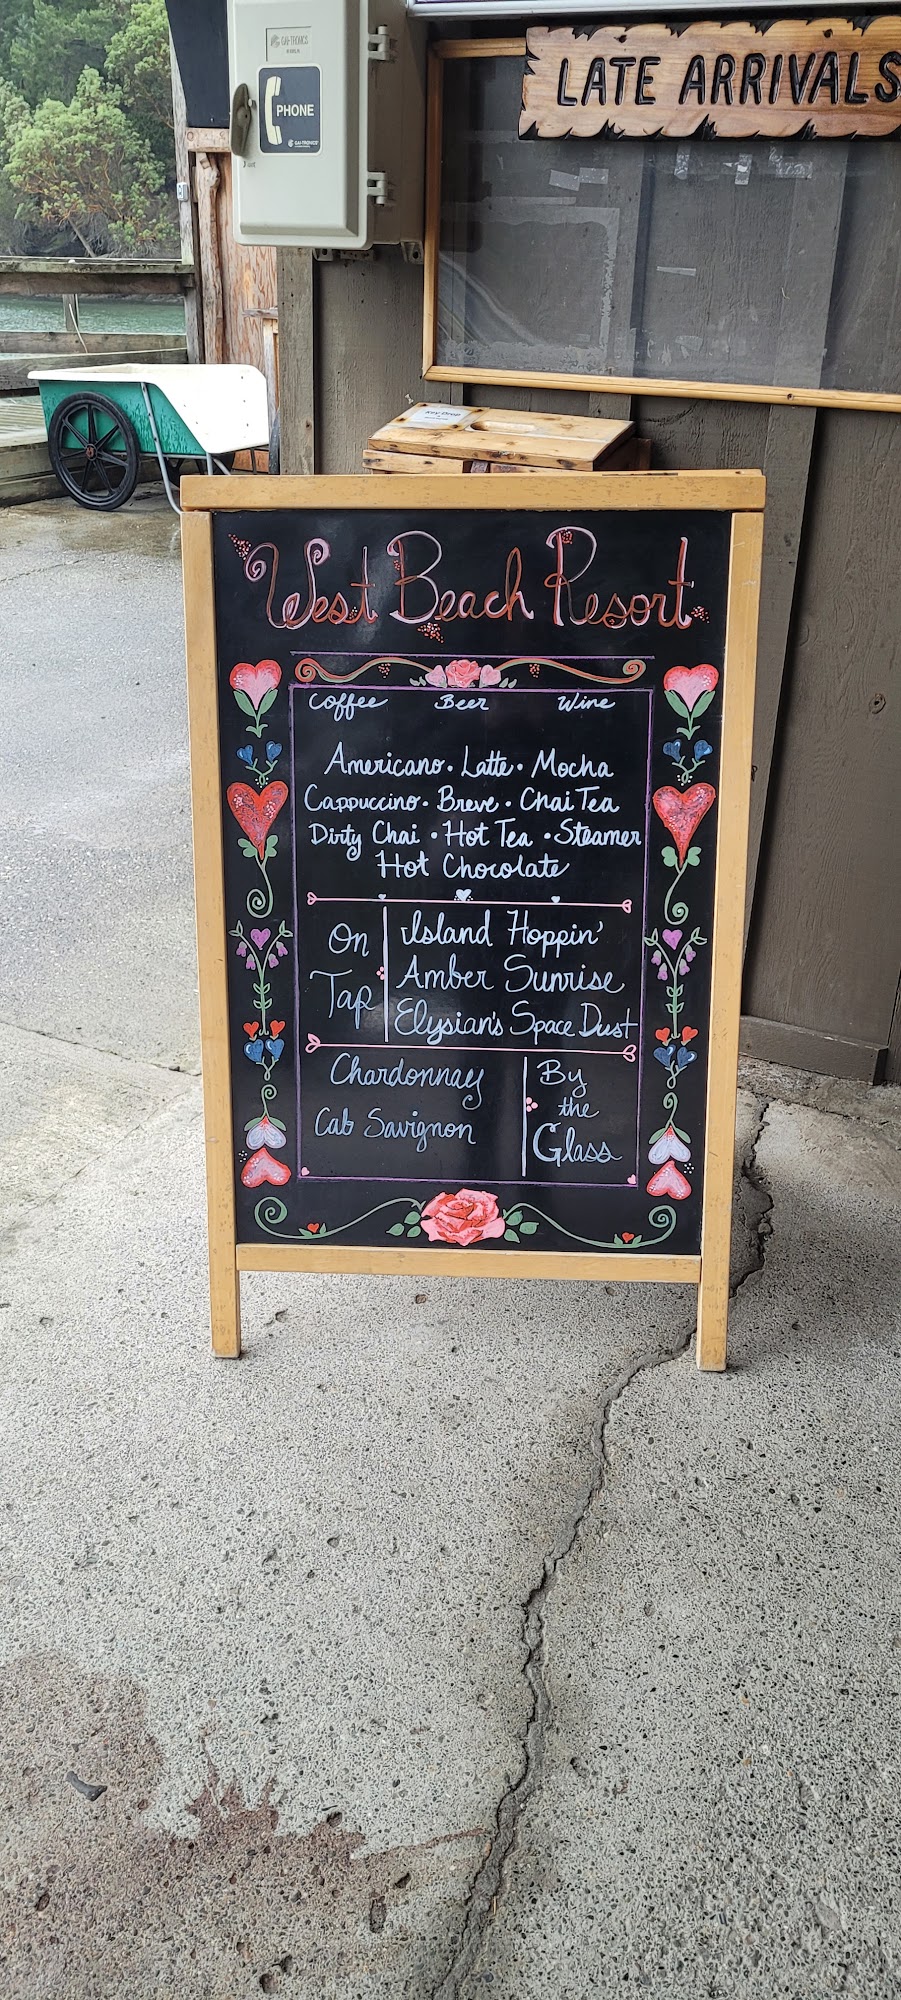 GAI-TRONICS
PHONE
GAI-TRONICS
LATE ARRIVALS
Key Drop
West Beach Resort
Coffee Beer Wine
Americano • Latte • Mocha
Cappuccino • Breve • Chai Tea
Dirty Chai • Hot Tea • Steamer
Hot Chocolate
On Tap
Island Hoppin'
Amber Sunrise
Elysian's Space Dust
Chardonnay
Cab Savignon
By the Glass